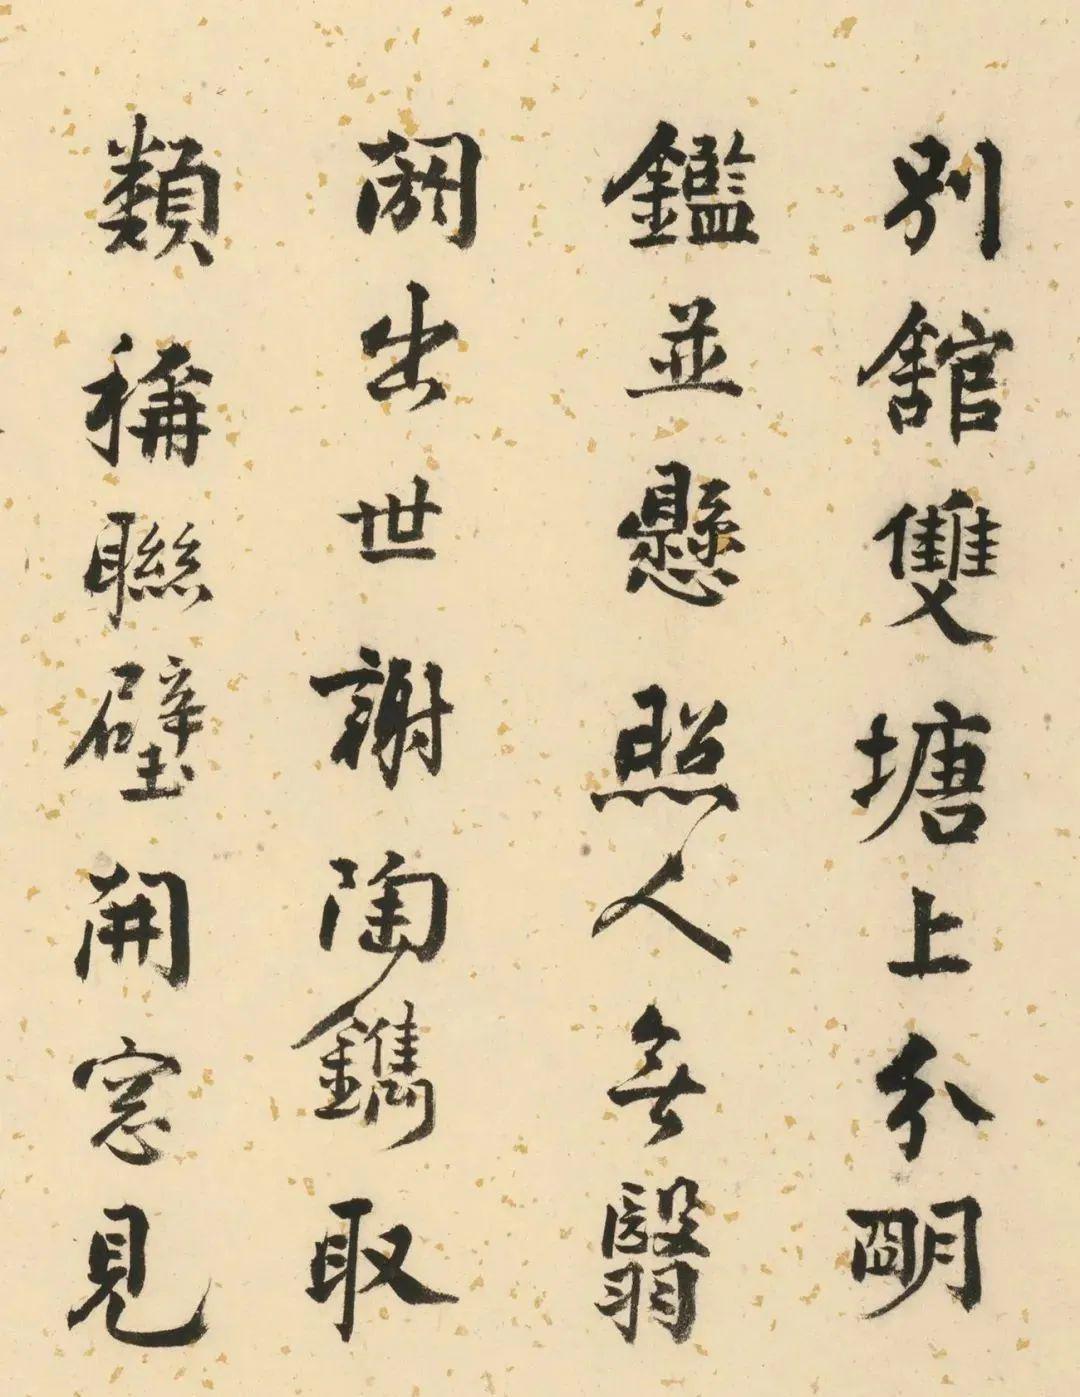 別舘雙塘上分明
鑑並懸照人無翳
闕出世謝陶鐫取
類稱聯璧開窓見